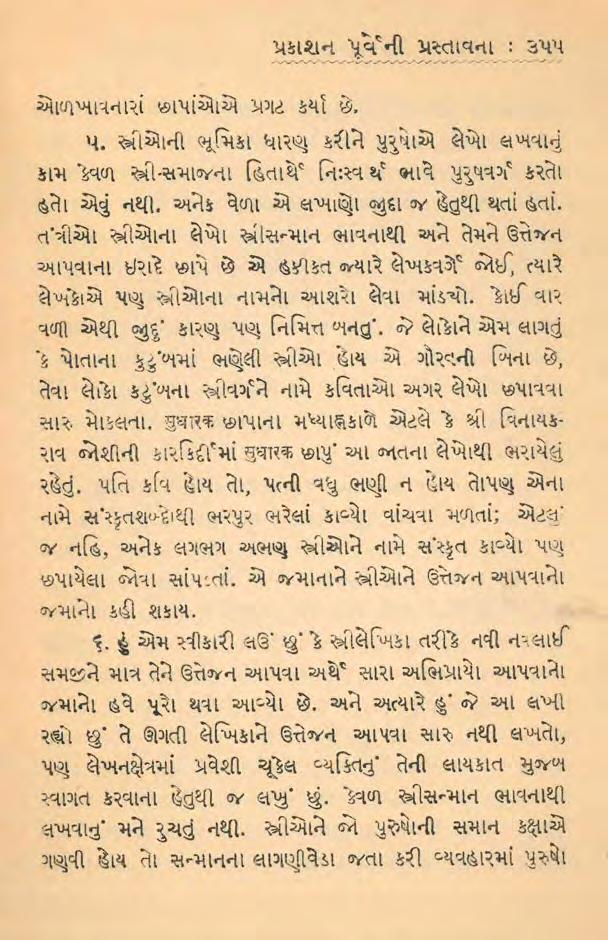 પ્રકાશન પૂર્વેની પ્રસ્તાવના : ૩૫૫
ઓળખાવનારાં છાપાંઓએ પ્રગટ કર્યાં છે.
૫. સ્ત્રીઓની ભૂમિકા ધારણ કરીને પુરુષોએ લેખો લખવાનું
કામ કેવળ સ્ત્રી-સમાજના હિતાર્થે નિઃસ્વ ર્થ ભાવે પુરુષવર્ગ કરતો
હતો એવું નથી. અનેક વેળા એ લખાણો જુદા જ હેતુથી થતાં હતાં.
તંત્રીઓ સ્ત્રીઓના લેખો સ્ત્રીસન્માન ભાવનાથી અને તેમને ઉત્તેજન
આપવાના ઇરાદે છાપે છે એ હકીકત જ્યારે લેખકવર્ગે જોઈ, ત્યારે
લેખકોએ પણ સ્ત્રીઓના નામનો આશરો લેવા માંડ્યો. કોઈ વાર
વળી એથી જુદું કારણ પણ નિમિત્ત બનતું. જે લોકોને એમ લાગતું
કે પોતાના કુટુંબમાં ભણેલી સ્ત્રીઓ હોય એ ગૌરવની બિના છે,
તેવા લોકો કટુંબના સ્ત્રીવર્ગને નામે કવિતાઓ અગર લેખો છપાવવા
સારુ મોકલતા. सुधारक છાપાના મધ્યાહ્નકાળે એટલે કે શ્રી વિનાયક-
રાવ જોશીની કારકિર્દીમાં सुधारक છાપું આ જાતના લેખોથી ભરાયેલું
રહેતું. પતિ કવિ હોય તો, પત્ની વધુ ભણી ન હોય તોપણ એના
નામે સંસ્કૃતશબ્દોથી ભરપુર ભરેલાં કાવ્યો વાંચવા મળતાં; એટલું
જ નહિ, અનેક લગભગ અભણ સ્ત્રીઓને નામે સંસ્કૃત કાવ્યો પણ
છપાયેલા જોવા સાંપડતાં. એ જમાનાને સ્ત્રીઓને ઉત્તેજન આપવાનો
જમાનો કહી શકાય.
૬. હું એમ સ્વીકારી લઉં છું કે સ્ત્રીલેખિકા તરીકે નવી નવલાઈ
સમજીને માત્ર તેને ઉત્તેજન આપવા અર્થે સારા અભિપ્રાયો આપવાનો
જમાનો હવે પૂરો થવા આવ્યો છે. અને અત્યારે હું જે આ લખી
રહ્યો છું તે ઊગતી લેખિકાને ઉત્તેજન આપવા સારુ નથી લખતો,
પણ લેખનક્ષેત્રમાં પ્રવેશી ચૂકેલ વ્યક્તિનું તેની લાયકાત મુજબ
સ્વાગત કરવાના હેતુથી જ લખું છું. કેવળ સ્ત્રીસન્માન ભાવનાથી
લખવાનું મને રુચતું નથી. સ્ત્રીઓને જો પુરુષોની સમાન કક્ષાએ
ગણવી હોય તો સન્માનના લાગણીવેડા જતા કરી વ્યવહારમાં પુરુષો